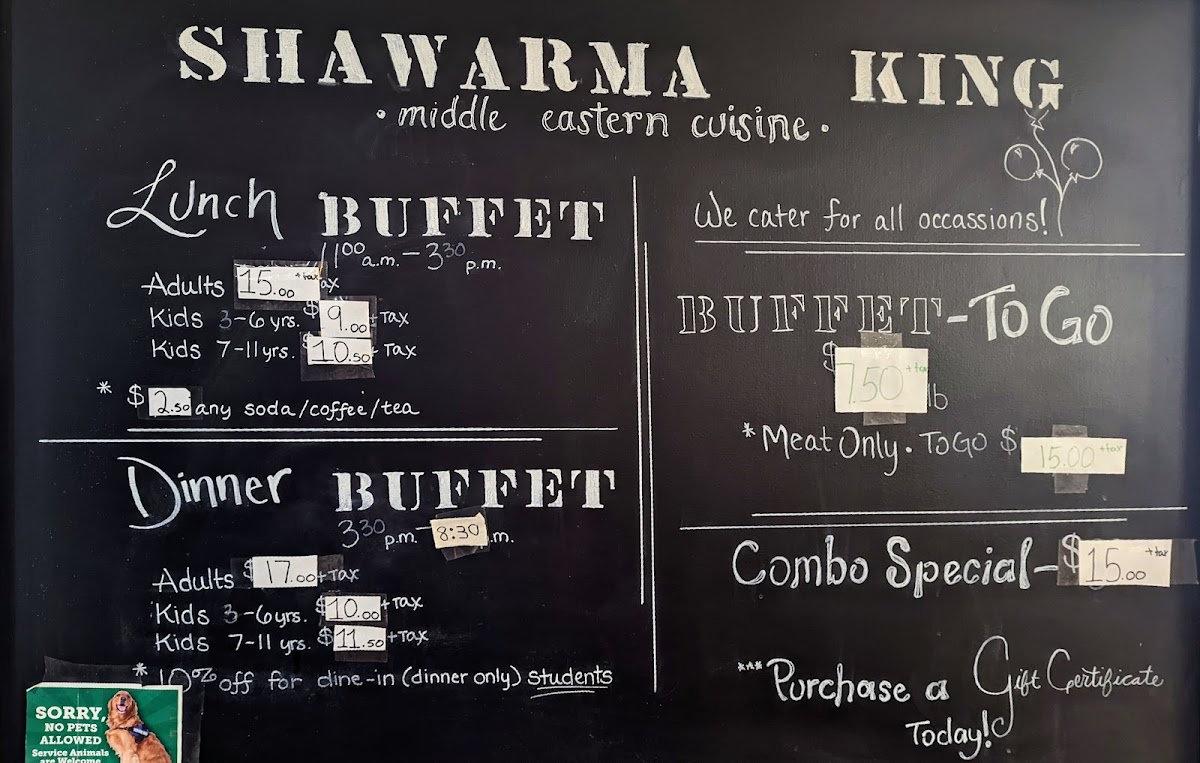 SHAWARMA KING
• middle eastern cuisine •
Lunch BUFFET
11:00 a.m. – 3:30 p.m.
Adults 15.00 +tax
Kids 3-6 yrs. $9.00 + Tax
Kids 7-11 yrs. 10.50 + Tax
* $2.50 any soda/coffee/tea
Dinner BUFFET
3:30 p.m. – 8:30 .m.
Adults $17.00 + Tax
Kids 3-6 yrs. $10.00 + Tax
Kids 7-11 yrs. $11.50 + Tax
* 10% off for dine-in (dinner only) students
SORRY,
NO PETS
ALLOWED
Service Animals
are Welcome
We cater for all occassions!
BUFFET - To Go
$7.50 +tax
lb
*Meat Only. To Go $15.00 +tax
Combo Special - $15.00 +tax
***Purchase a Gift Certificate
Today!